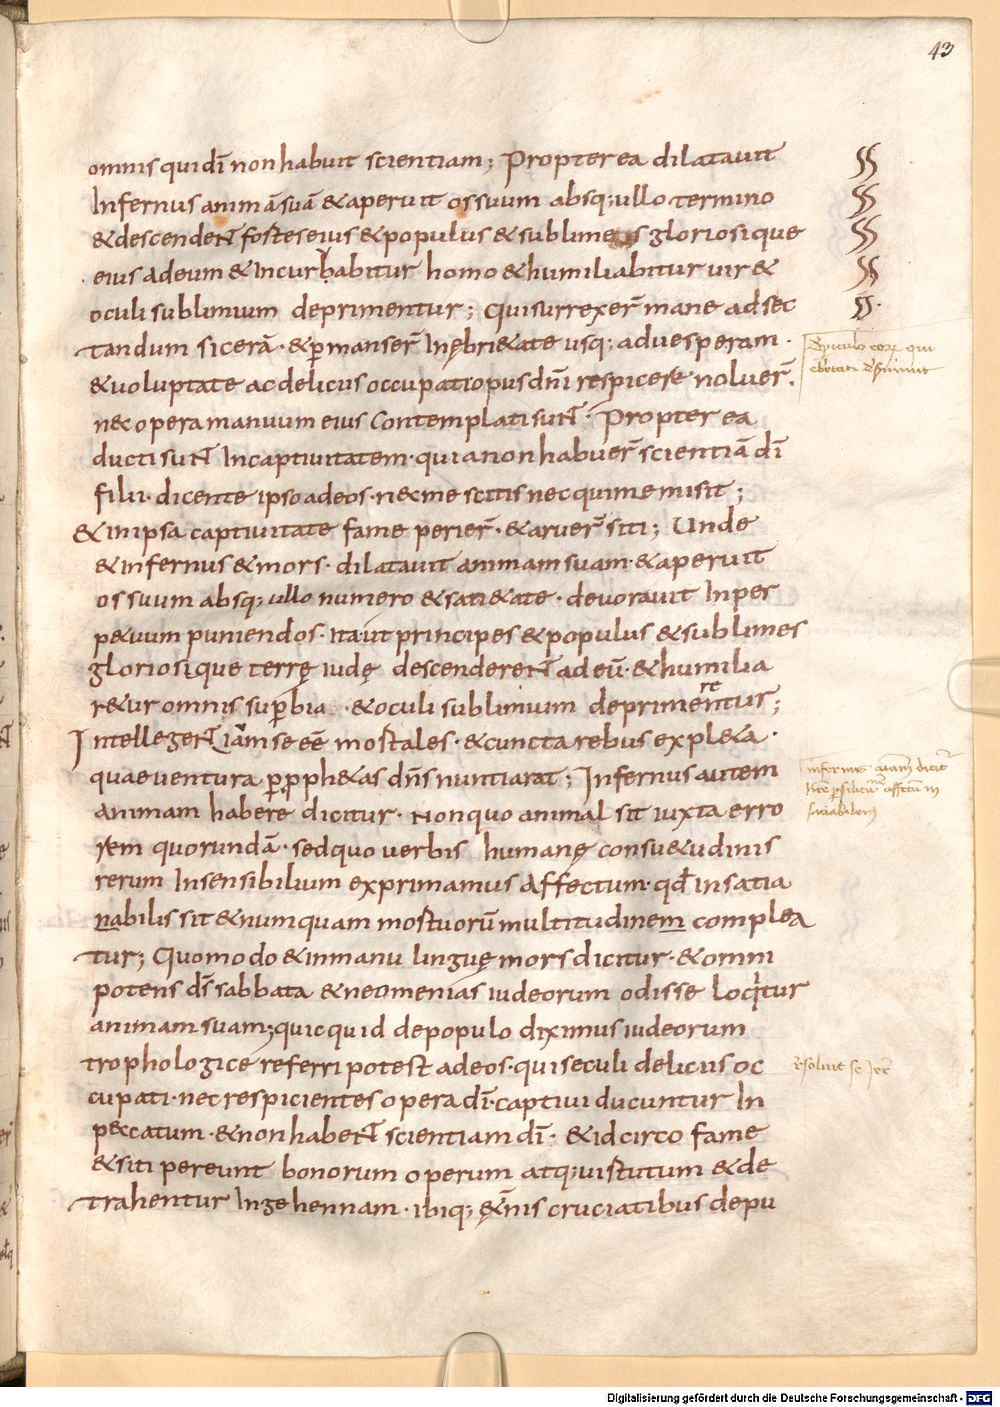 43
omnis qui dī non habuit scientiam; Propterea dilatauit
Infernus animā suā & aperuit os suum absq; ullo termino
& descendeNt fortes eius & populus & sublimes gloriosique
eius ad eum & Incurbabitur homo & humiliabitur uir &
oculi sublimium deprimentur; Qui surrexer̄ mane ad sec
tandum sicerā · & p̱manser̄ In ębri&ate usq; ad uesperam ·
& uoluptate ac deliciis occupati opus dn̄i respicere noluer̄.
nec opera manuum eius Contemplati suNt · Propterea
ducti suNt In captiuitatem · quia non habuer̄ scientiā dī
filii · dicente ipso ad eos · nec me scitis nec qui me misit;
& in ipsa captiuitate fame perier̄ · & aruer̄ siti; Unde
& infernus & mors · dilatauit animam suam · & aperuit
os suum absq; ullo numero & sati&ate · deuorauit In per
p&uum puniendos · ita ut principes & populus & sublimes
gloriosique terrę iudę descendereNt ad eū · & humilia
r&ur omnis sup̱bia · & oculi sublimium deprimerentur;
IntellegeNt iam se eē mortales · & cuncta rebus expl&a ·
quae uentura p̱ p̱ph&as dn̄s nuntiarat; Infernus autem
animam habere dicitur · Non quo animal sit iuxta erro
rem quorundā · sed quo uerbis humanę consu&udinis
rerum Insensibilium exprimamus Affectum · qđ Insatia
nabilis sit & numquam mortuorū multitudinem complea
tur; Quomodo & in manu linguę mors dicitur · & omni
potens ds̄ sabbata & neomenias iudeorum odisse loq̇tur
animam suam; quicquid de populo diximus iudeorum
trophologice referri potest ad eos · qui seculi deliciis oc
cupati · nec respicientes opera dī · captiui ducuntur In
peccatum · & non habeNt scientiam dī · & idcirco fame
& siti pereunt bonorum operum atq; uirtutum & de
trahentur In gehennam · ibiq; &ēnis cruciatibus depu